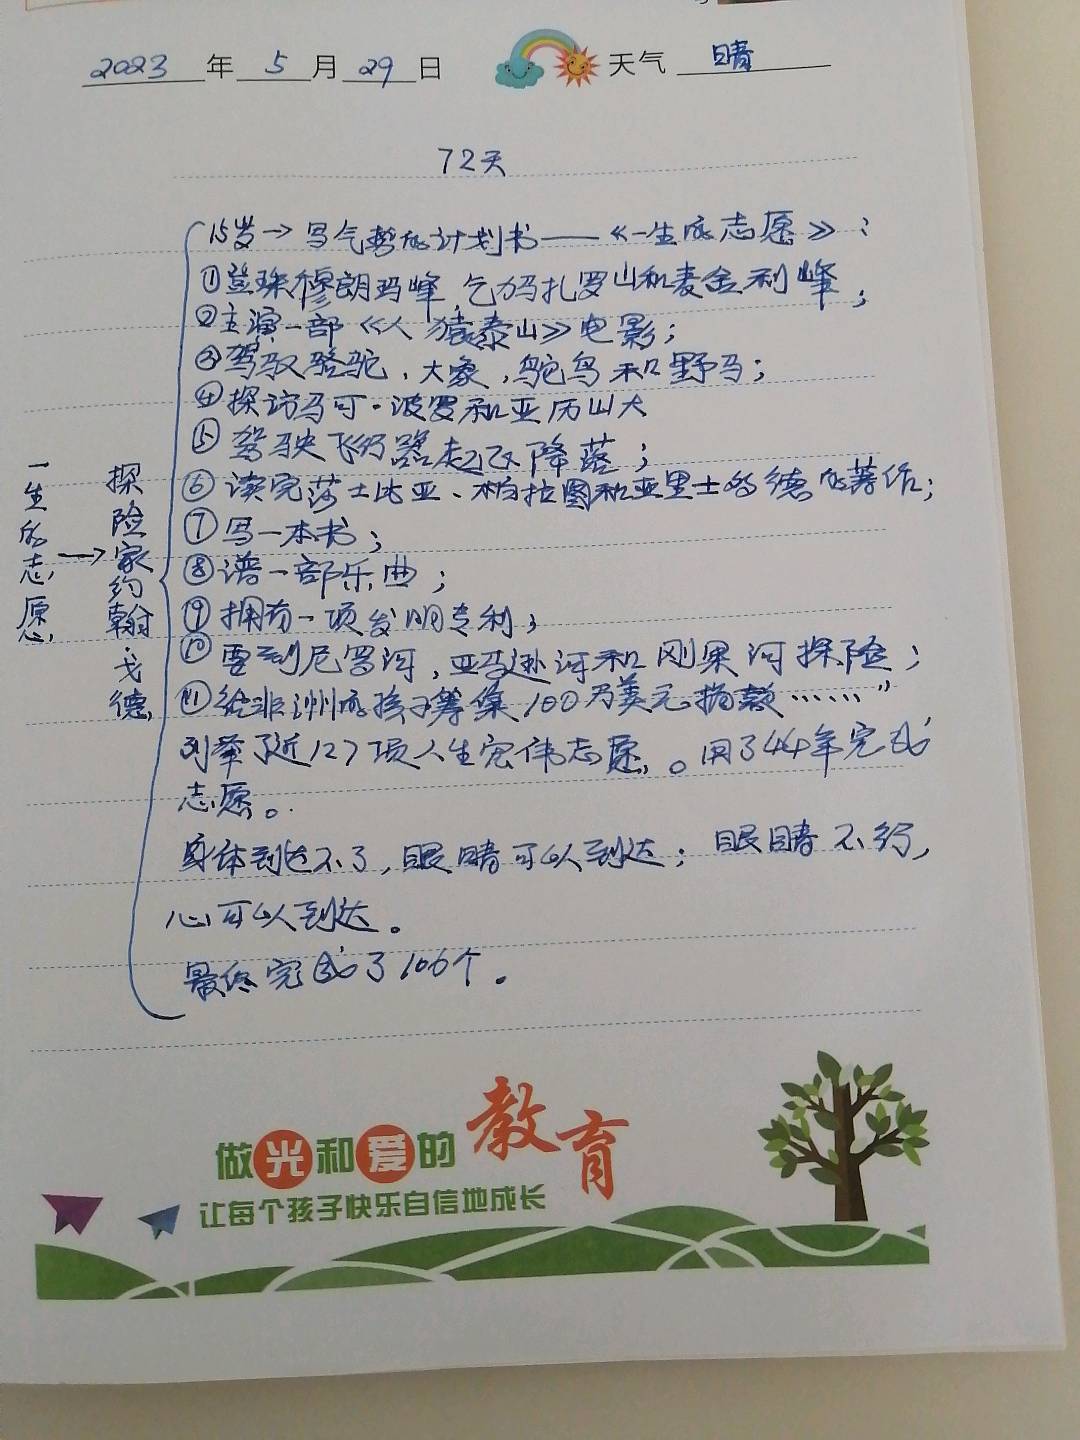 2023年5月29日 天气 晴
72天
一生的志愿→探险家约翰·戈德
15岁→写气势的计划书——《一生的志愿》：
①登珠穆朗玛峰,乞力玛扎罗山和麦金利峰；
②主演一部《人猿泰山》电影；
③驾驭骆驼、大象,鸵鸟和野马；
④探访马可·波罗和亚历山大
⑤驾驶飞行器起飞降落；
⑥读完莎士比亚、柏拉图和亚里士的德的著作；
⑦写一本书；
⑧谱一部乐曲；
⑨拥有一项发明专利；
⑩要到尼罗河,亚马逊河和刚果河探险；
⑪给非洲的孩子筹集100万美元捐款……”
列举了近127项人生宏伟志愿。用了44年完成
志愿。
身体到达不了,眼睛可以到达；眼睛不行,
心可以到达。
最终完成了106个。
做光和爱的教育
让每个孩子快乐自信地成长